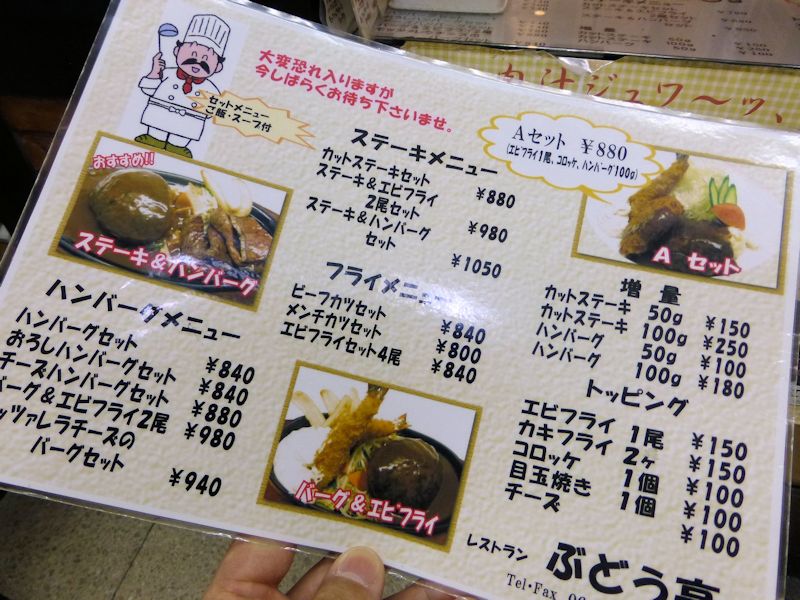 大変恐れ入りますが
今しばらくお待ち下さいませ。
セットメニュー
ご飯・スープ付
おすすめ!!
ステーキ&ハンバーグ
ステーキメニュー
カットステーキセット ¥880
ステーキ&エビフライ
2尾セット ¥980
ステーキ&ハンバーグ
セット ¥1050
Aセット ¥880
(エビフライ1尾、コロッケ、ハンバーグ100g)
A セット
ハンバーグメニュー
ハンバーグセット ¥840
おろしハンバーグセット ¥840
チーズハンバーグセット ¥880
バーグ&エビフライ2尾 ¥980
ッツァレラチーズの
バーグセット ¥940
フライメニュー
ビーフカツセット ¥840
メンチカツセット ¥800
エビフライセット4尾 ¥840
バーグ&エビフライ
増 量
カットステーキ 50g ¥150
カットステーキ 100g ¥250
ハンバーグ 50g ¥100
ハンバーグ 100g ¥180
トッピング
エビフライ 1尾 ¥150
カキフライ 2ヶ ¥150
コロッケ 1個 ¥100
目玉焼き 1個 ¥100
チーズ ¥100
レストラン ぶどう亭
Tel・Fax
肉汁ジュワ〜ッ、